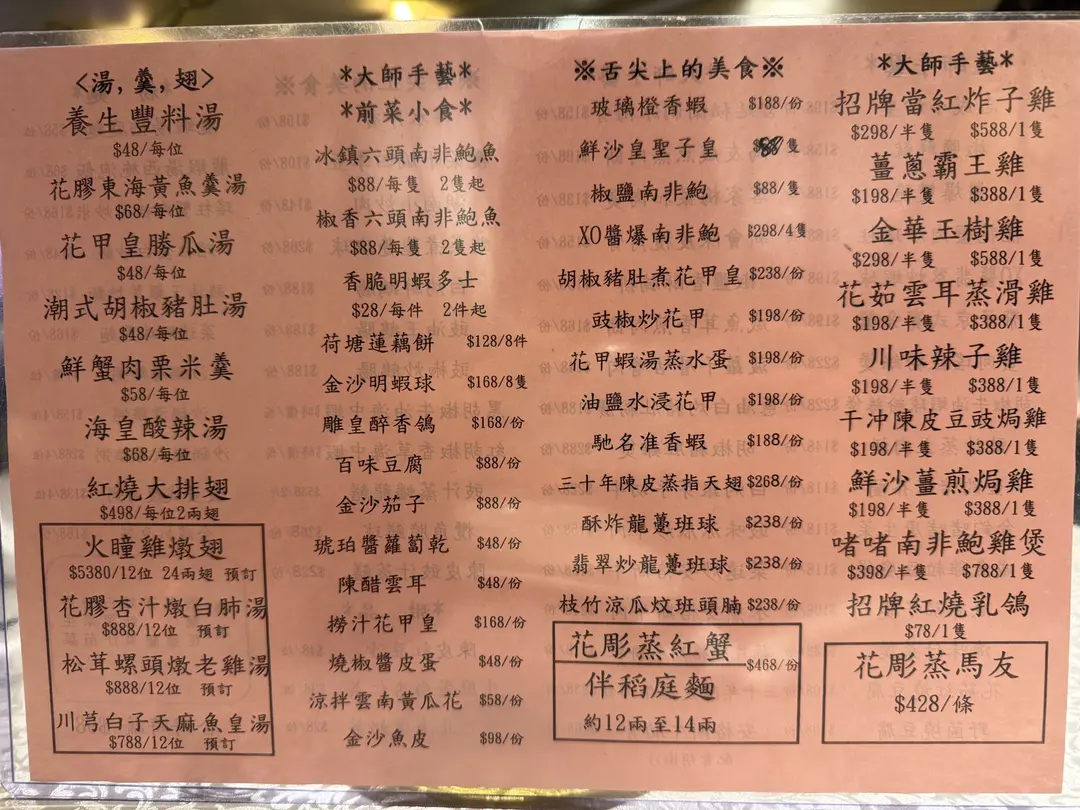 <湯,羹,翅>
養生豐料湯
$48/每位
花膠東海黃魚羹湯
$68/每位
花甲皇勝瓜湯
$48/每位
潮式胡椒豬肚湯
$48/每位
鮮蟹肉栗米羹
$58/每位
海皇酸辣湯
$68/每位
紅燒大排翅
$498/每位2兩翅
火瞳雞燉翅
$5380/12位 24兩翅 預訂
花膠杏汁燉白肺湯
$888/12位 預訂
松茸螺頭燉老雞湯
$888/12位 預訂
川芎白子天麻魚皇湯
$788/12位 預訂
*大師手藝*
*前菜小食*
冰鎮六頭南非鮑魚
$88/每隻 2隻起
椒香六頭南非鮑魚
$88/每隻 2隻起
香脆明蝦多士
$28/每件 2件起
荷塘蓮藕餅 $128/8件
金沙明蝦球 $168/8隻
雕皇醉香鴿 $168/份
百味豆腐 $88/份
金沙茄子 $88/份
琥珀醬蘿蔔乾 $48/份
陳醋雲耳 $48/份
撈汁花甲皇 $168/份
燒椒醬皮蛋 $48/份
涼拌雲南黃瓜花 $58/份
金沙魚皮 $98/份
※舌尖上的美食※
玻璃橙香蝦 $188/份
鮮沙皇聖子皇 隻
椒鹽南非鮑 $88/隻
XO醬爆南非鮑 $298/4隻
胡椒豬肚煮花甲皇 $238/份
豉椒炒花甲 $198/份
花甲蝦湯蒸水蛋 $198/份
油鹽水浸花甲 $198/份
馳名准香蝦 $188/份
三十年陳皮蒸指天翅 $268/份
酥炸龍躉班球 $238/份
翡翠炒龍躉班球 $238/份
枝竹涼瓜炆班頭腩 $238/份
花彫蒸紅蟹
$468/份
伴稻庭麵
約12兩至14兩
*大師手藝*
招牌當紅炸子雞
$298/半隻 $588/1隻
薑蔥霸王雞
$198/半隻 $388/1隻
金華玉樹雞
$298/半隻 $588/1隻
花茹雲耳蒸滑雞
$198/半隻 $388/1隻
川味辣子雞
$198/半隻 $388/1隻
干冲陳皮豆豉焗雞
$198/半隻 $388/1隻
鮮沙薑煎焗雞
$198/半隻 $388/1隻
啫啫南非鮑雞煲
$398/半隻 $788/1隻
招牌紅燒乳鴿
$78/1隻
花彫蒸馬友
$428/條